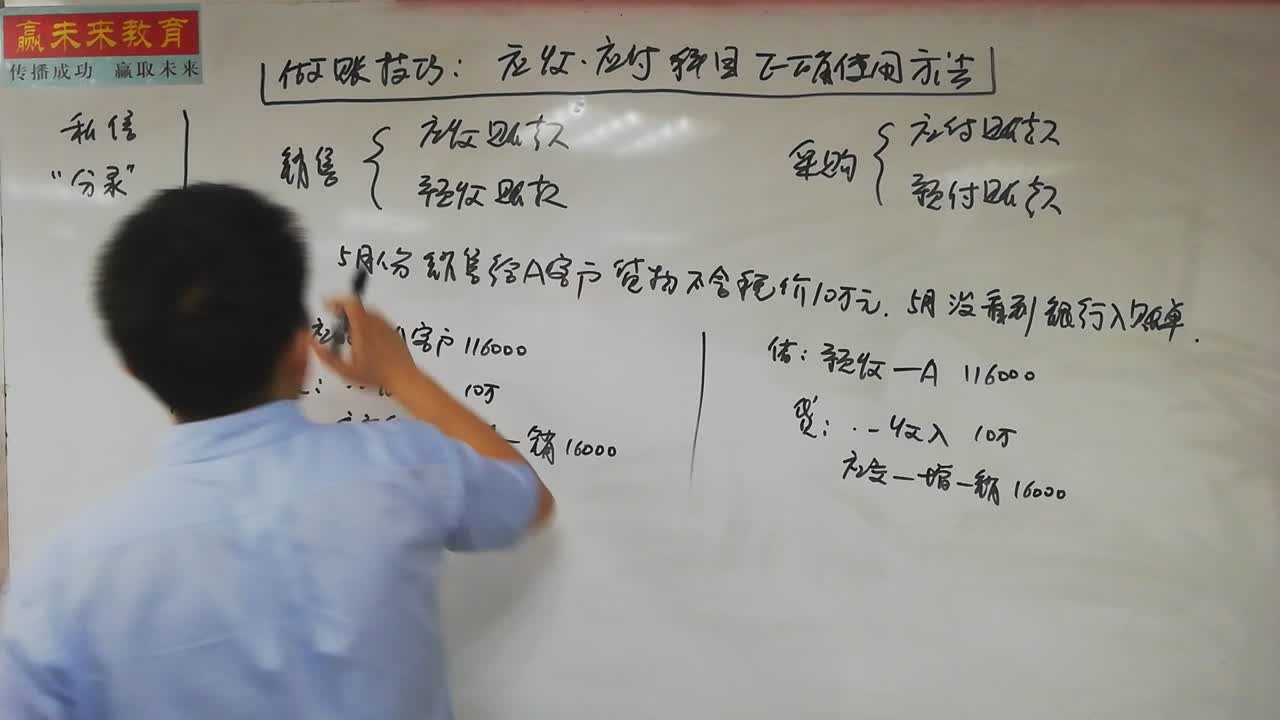 赢未来教育
传播成功 赢取未来
做账技巧：应收·应付科目正确使用方法
私信
“分录”
销售 { 应收账款
预收账款
采购 { 应付账款
预付账款
5月份销售给A客户货物不含税价10万元. 5月没看到银行入账单.
客户 116000
10万
一销 16000
借：预收—A 116000
贷：··—收入 10万
应交—增—销 16000